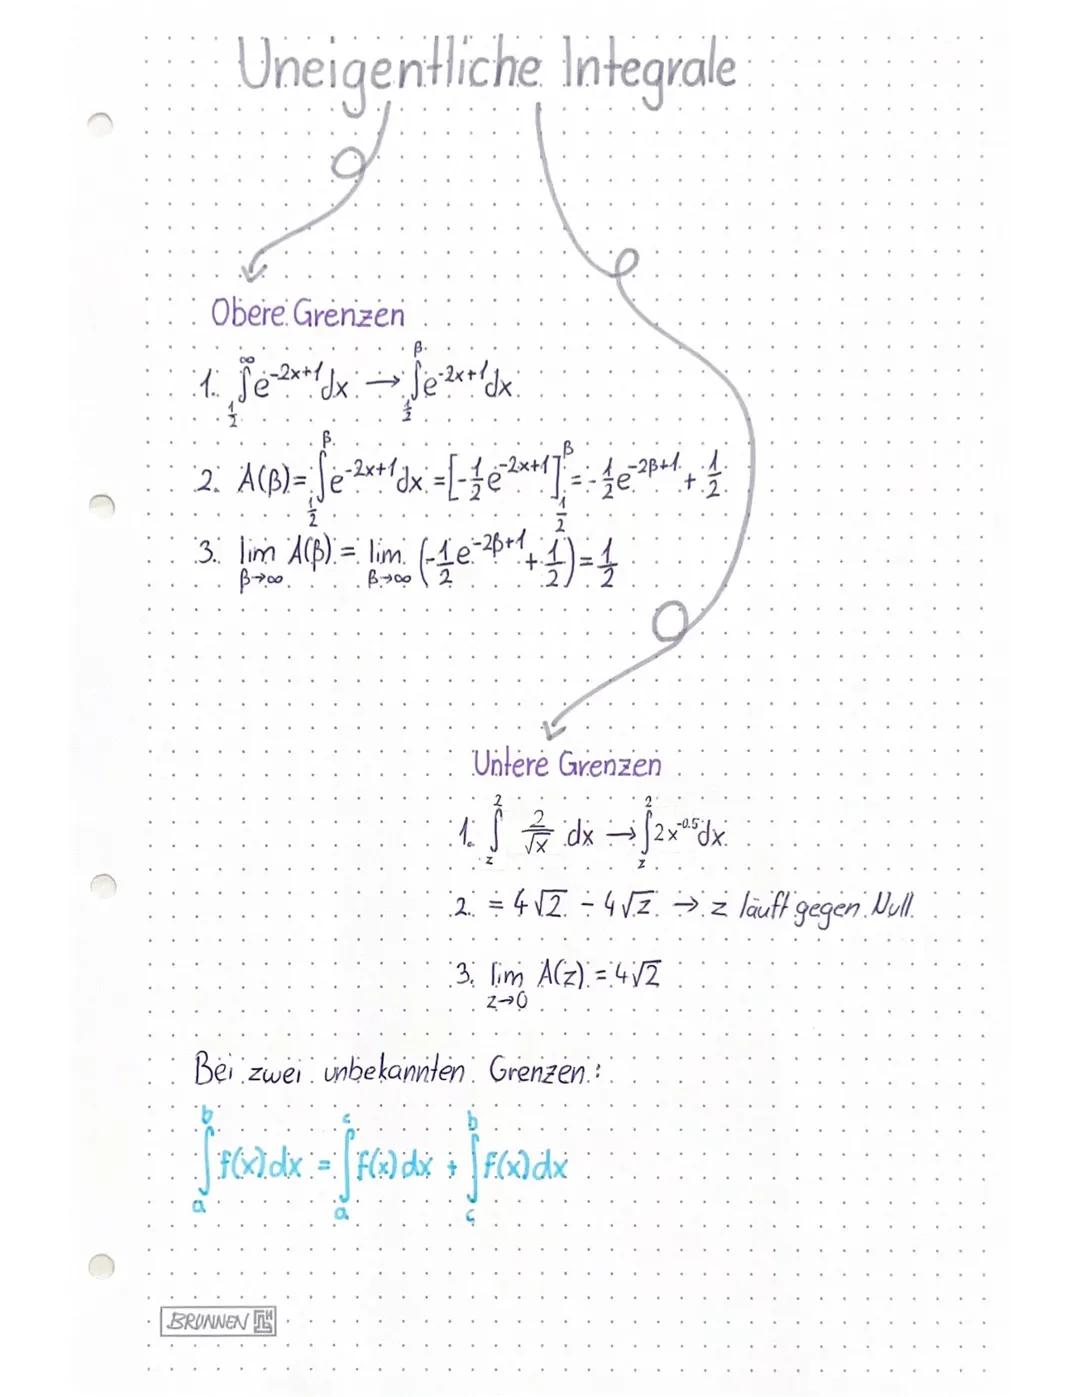 Uneigentliche Integrale
Obere Grenzen
1. ∫_{1/2}^{∞} e^{-2x+1} dx → ∫_{1/2}^{β} e^{-2x+1} dx
2. A(β) = ∫_{1/2}^{β} e^{-2x+1} dx = [-1/2 e^{-2x+1}]_{1/2}^{β} = -1/2 e^{-2β+1} + 1/2
3. lim_{β→∞} A(β) = lim_{β→∞} (-1/2 e^{-2β+1} + 1/2) = 1/2
Untere Grenzen
1. ∫_{z}^{2} 2/√x dx → ∫_{z}^{2} 2x^{-0.5} dx
2. = 4√2 - 4√z → z läuft gegen Null
3. lim_{z→0} A(z) = 4√2
Bei zwei unbekannten Grenzen:
∫_{a}^{b} f(x) dx = ∫_{a}^{c} f(x) dx + ∫_{c}^{b} f(x) dx
BRUNNEN